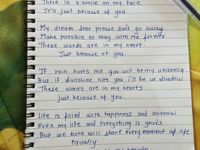 There is a smile on my face
It's just because of you
My dream dear please don't go away.
Make possible to stay with me forever
These words are in my heart
Just because of you.
If rain hurts me you will be my umbrella
But if sunshine hits you i'll be ur shadow
These words are in my hearts
just because of you.
Life is filled with happiness and sorrow
Even my life and everything is yours
But we both will share every moment of life
equally